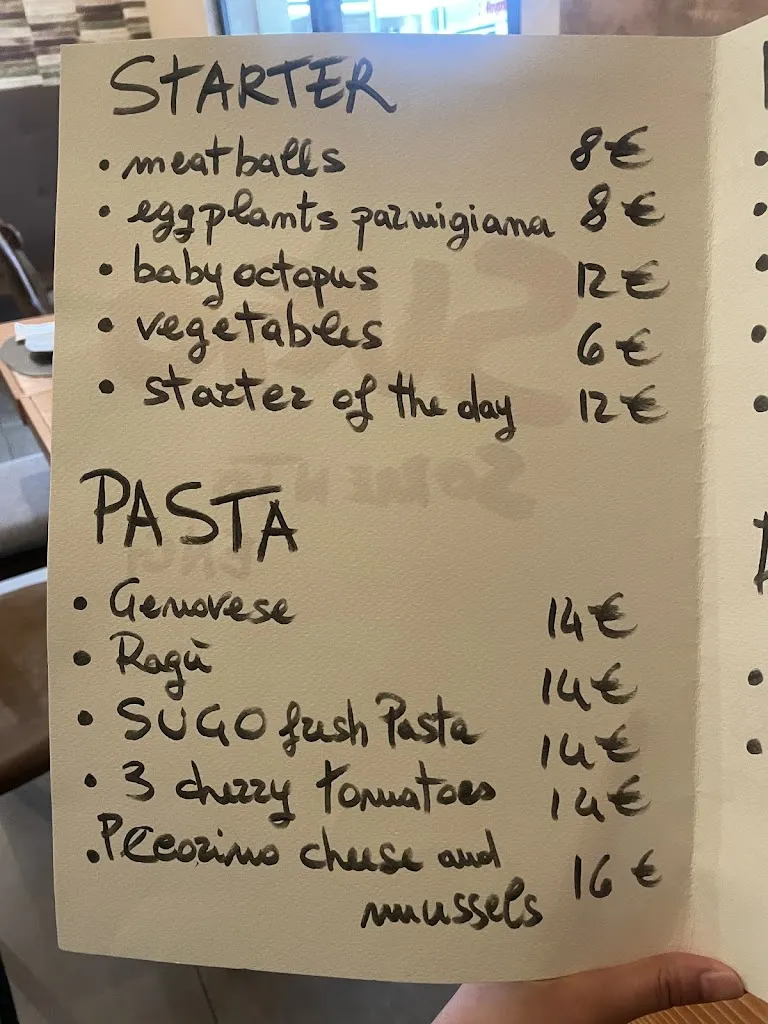 STARTER
• meatballs 8€
• eggplants parmigiana 8€
• baby octopus 12€
• vegetables 6€
• starter of the day 12€
PASTA
• Genovese 14€
• Ragù 14€
• SUGO fresh Pasta 14€
• 3 cherry tomatoes 14€
• Pecorino cheese and 16€
mussels